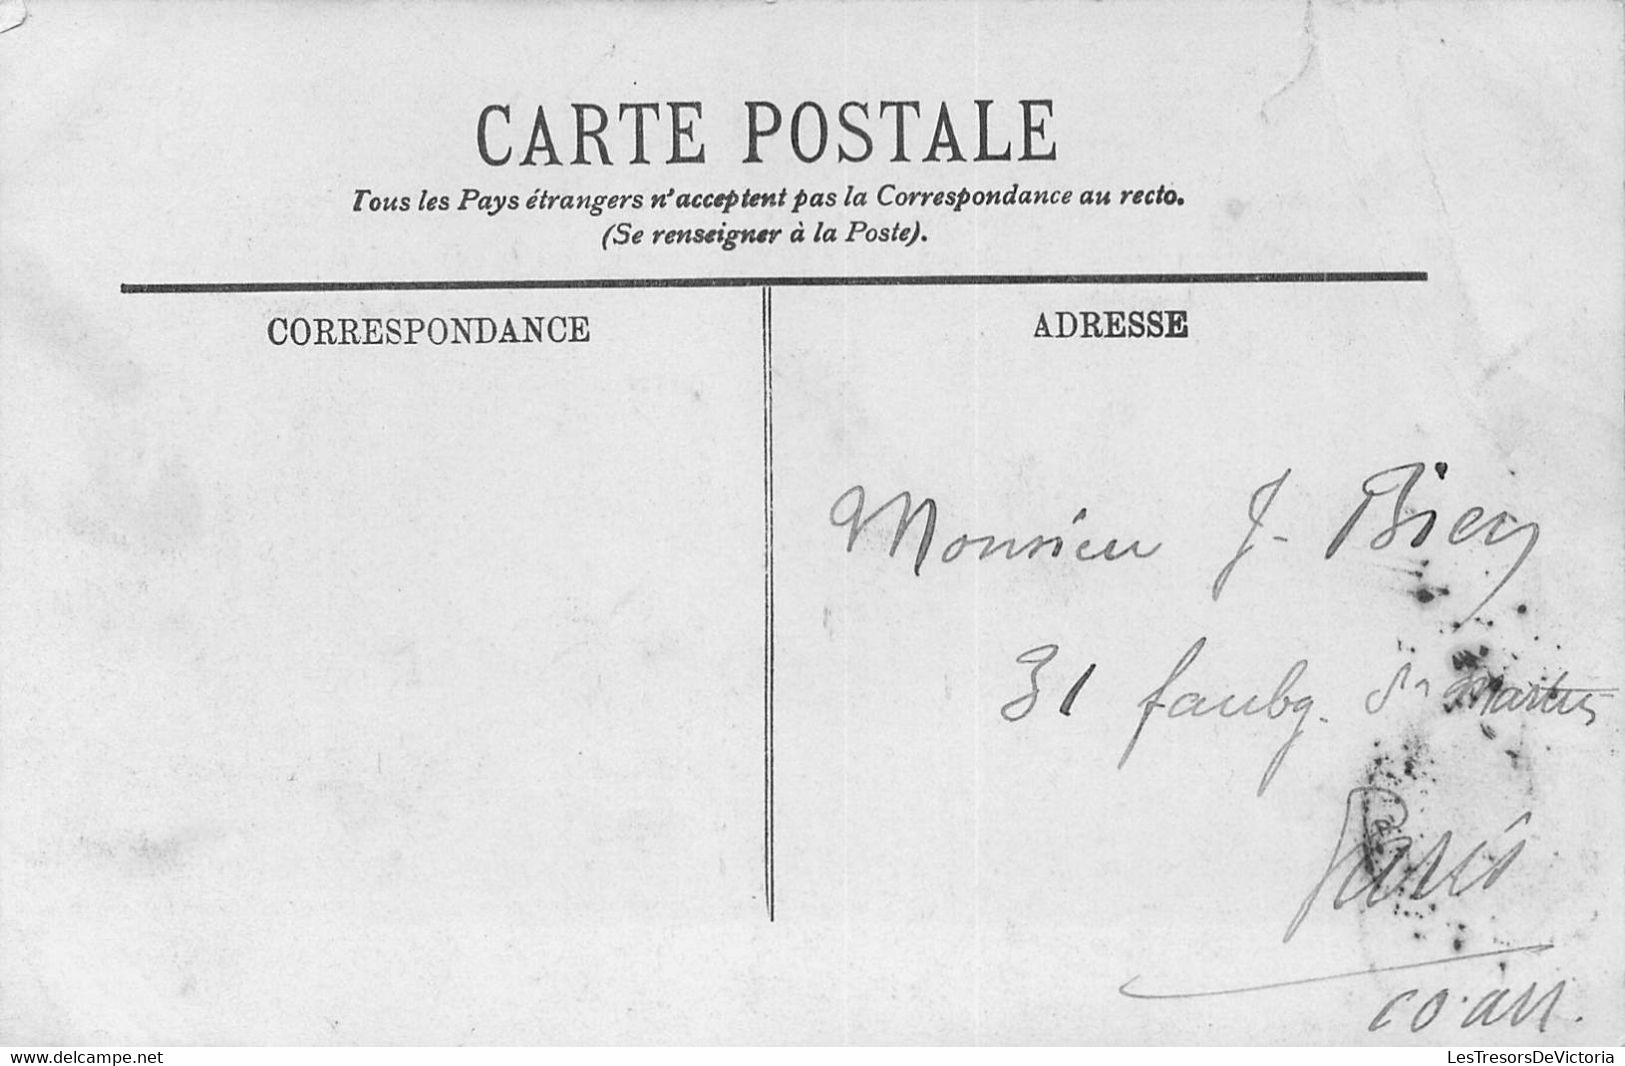 CARTE POSTALE
Tous les Pays étrangers n'acceptent pas la Correspondance au recto.
(Se renseigner à la Poste).
CORRESPONDANCE
ADRESSE
Monsieur J. 
31 faubg. St Martin
Paris
www.delcampe.net
LesTresorsDeVictoria